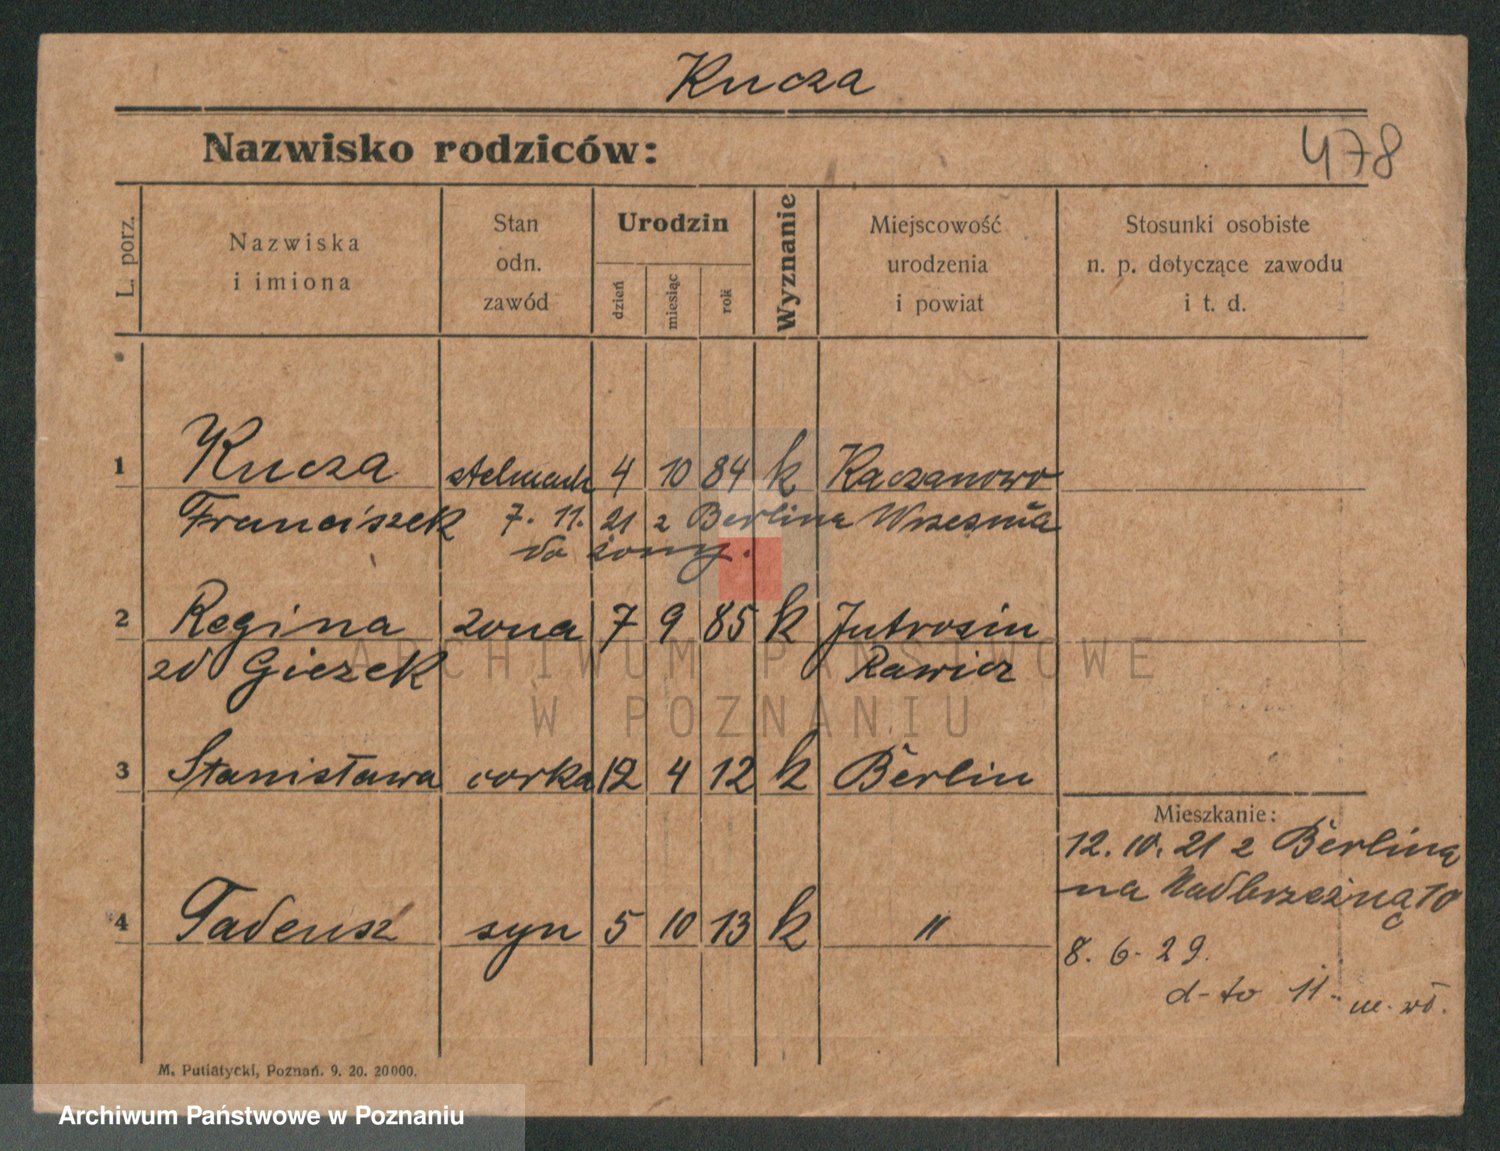 Kucza
Nazwisko rodziców:
478
L. porz.
Nazwiska
i imiona
Stan
odn.
zawód
Urodzin
dzień
miesiąc
rok
Wyznanie
Miejscowość
urodzenia
i powiat
Stosunki osobiste
n. p. dotyczące zawodu
i t. d.
1 Kucza stelmach 4 10 84 k Kaczanowo
Franciszek 7. 11. 21 z Berlina Wrzesnia
do żony.
2 Regina zona 7 9 85 k Jutrosin
zd Giezek Rawicz
3 Stanisława corka 12 4 12 k Berlin
Mieszkanie:
12. 10. 21 z Berlina
na Nadbrzeżną 10
4 Tadeusz syn 5 10 13 k "
8. 6. 29.
d-to 11. m. wł.
M. Putiatycki, Poznań. 9. 20. 20000.
ARCHIWUM PAŃSTWOWE
W POZNANIU
Archiwum Państwowe w Poznaniu